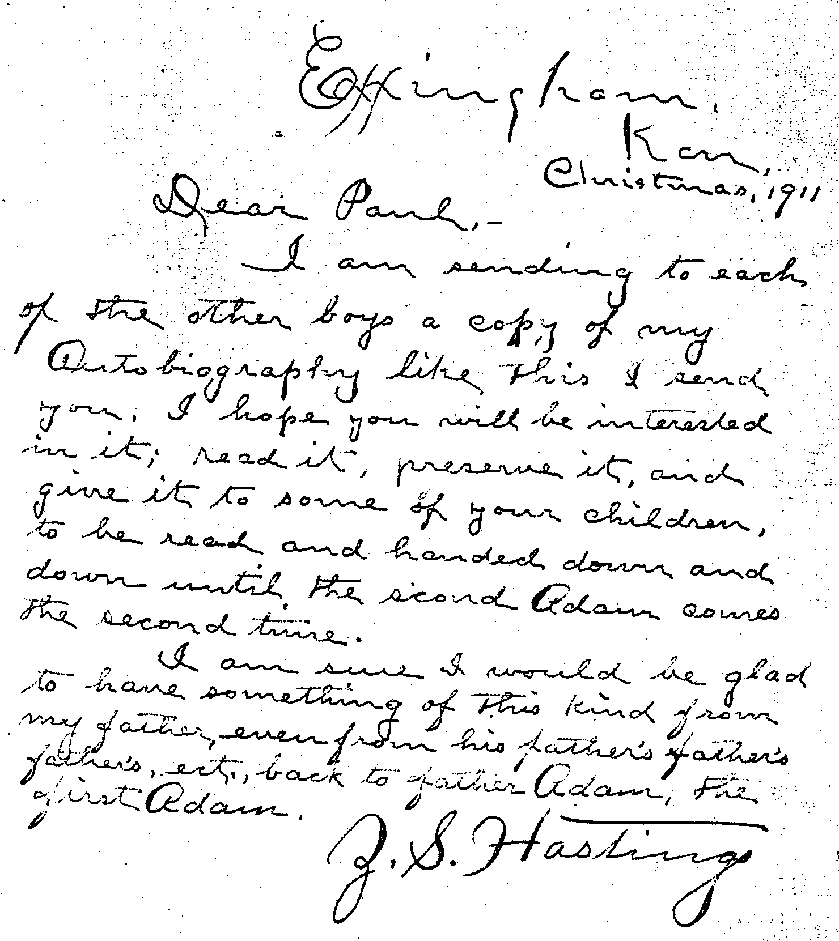 Effingham,
Kan,
Christmas, 1911
Dear Paul,-
I am sending to each
of the other boys a copy of my
Autobiography like this I send
you. I hope you will be interested
in it; read it, preserve it, and
give it to some of your children,
to be read and handed down and
down until the second Adam comes
the second time.
I am sure I would be glad
to have something of this kind from
my father, even from his father's father's
father's, ect., back to father Adam, the
first Adam.
Z. S. Hastings